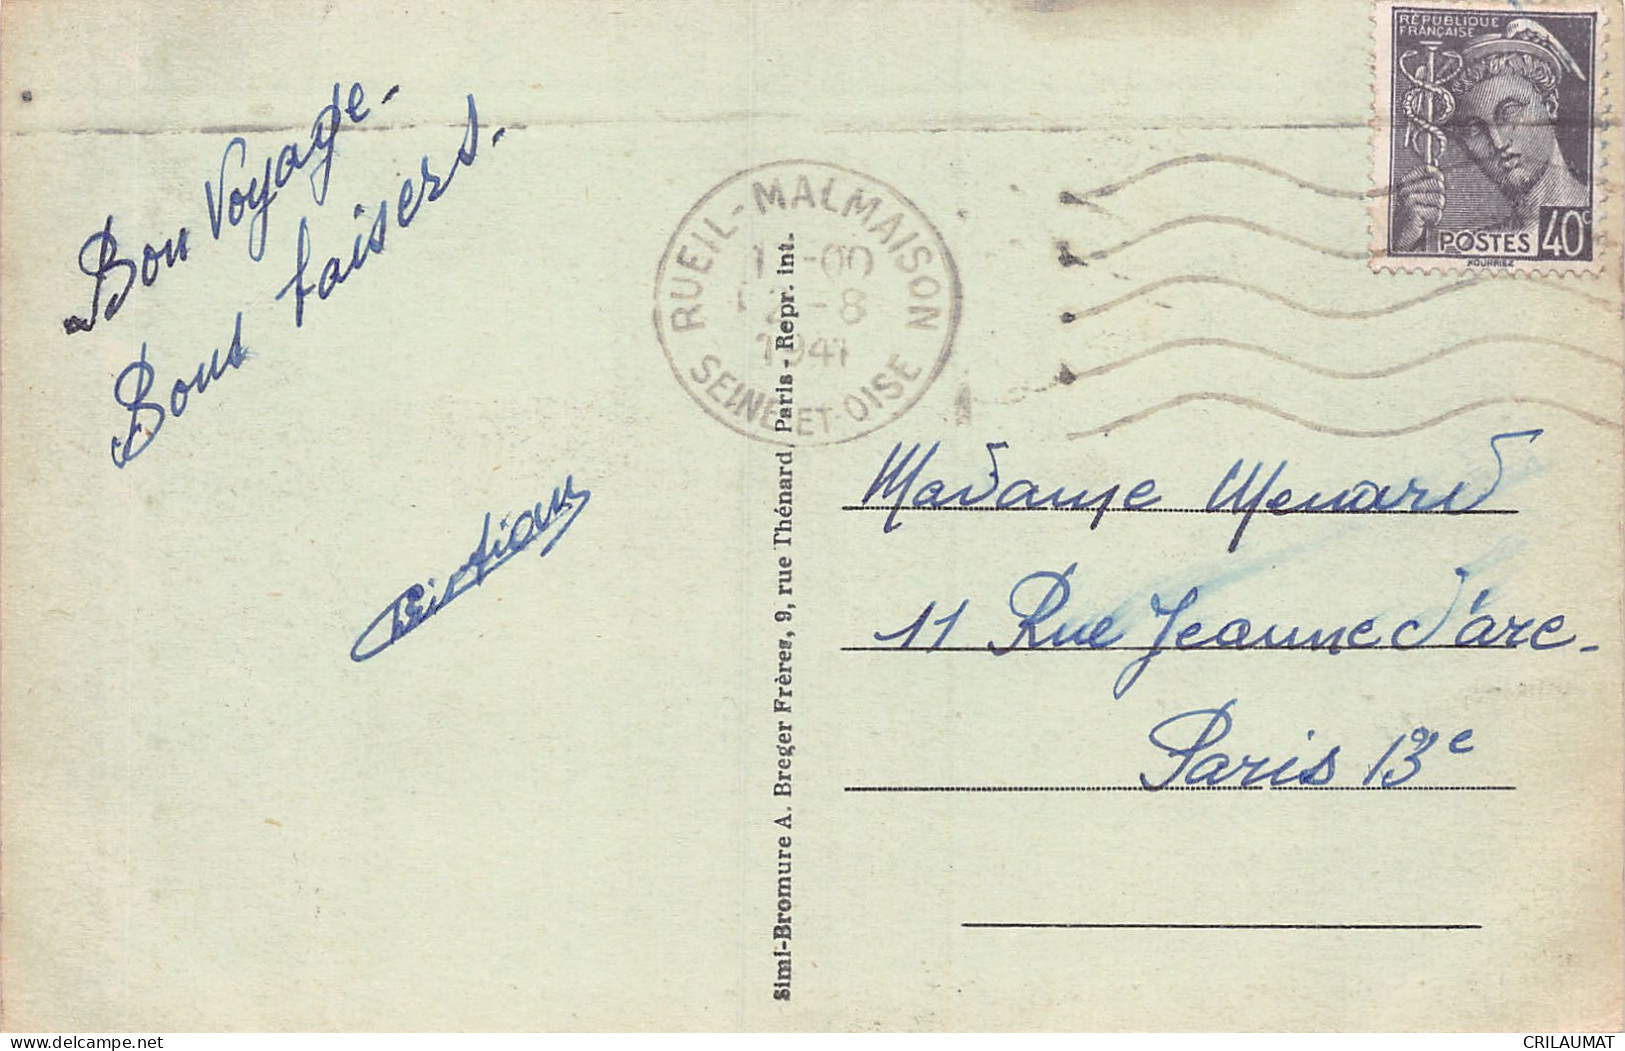 Bon Voyage-
Bons baisers.
Christian
RÉPUBLIQUE
FRANÇAISE
POSTES
40c
RUEIL-MALMAISON
-8
1941
SEINE-ET-OISE
Simi-Bromure A. Breger Frères, 9, rue Thénard, Paris - Repr. int.
Madame Menard
11 Rue Jeanne d'arc-
Paris 13e
delcampe.net
CRILAUMAT